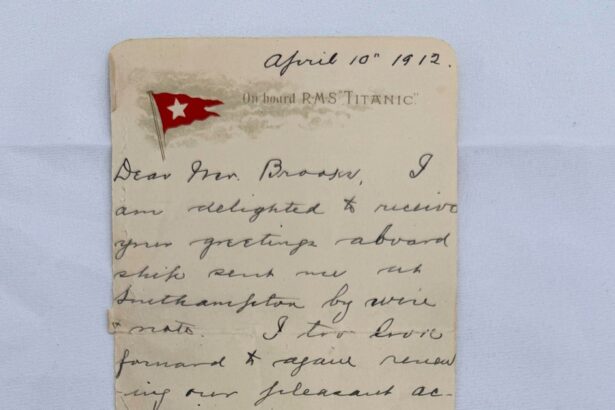 April 10" 1912.
On board R.M.S. "TITANIC".
Dear Mr. Brooks, I
am delighted to receive
your greetings aboard
ship sent me at
Southampton by wire
& note. I too look
forward to again renew
ing our pleasant ac-